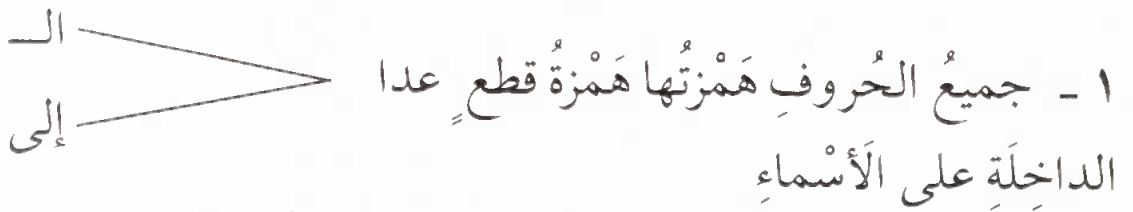 ١ - جميعُ الحُروفِ هَمْزتُها هَمْزةُ قطعٍ عدا
الـ
إلى
الداخِلَةِ على الَأسْماءِ